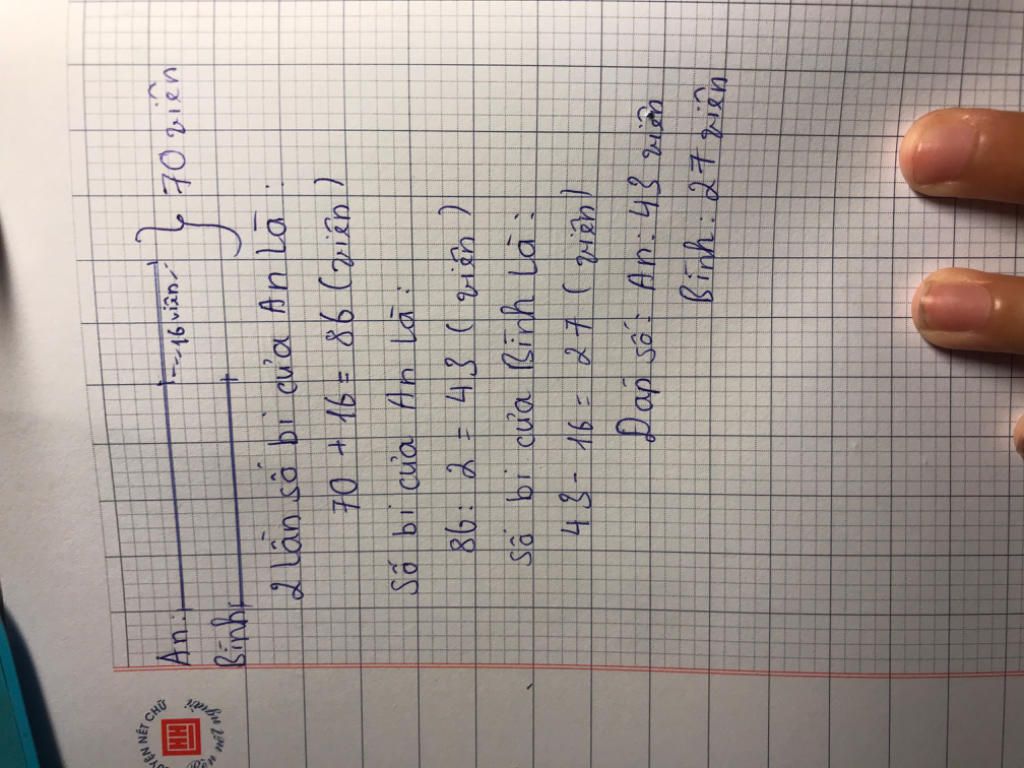 An: 16 viên } 70 viên
Bình
2 lần số bi của An là:
70 + 16 = 86 (viên)
Số bi của An là:
86 : 2 = 43 (viên)
Số bi của Bình là:
43 - 16 = 27 (viên)
Đáp số: An: 43 viên
Bình: 27 viên
NÉT CHỮ
HH